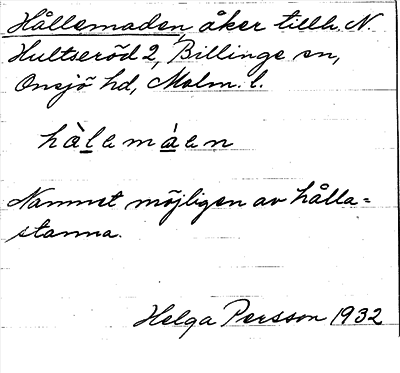 Hållemaden, åker tillh. N.
Hultseröd 2, Billinge sn,
Onsjö hd, Malm. l.
hàlemáen
Namnet möjligen av hålla=
stanna.
Helga Persson 1932